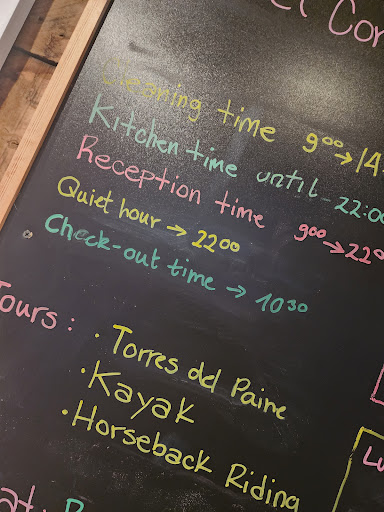 Cleaning time 9⁰⁰→14
Kitchen time until - 22:00
Reception time 9⁰⁰→22⁰
Quiet hour → 22⁰⁰
Check-out time → 10³⁰
Tours:
· Torres del Paine
· Kayak
· Horseback Riding